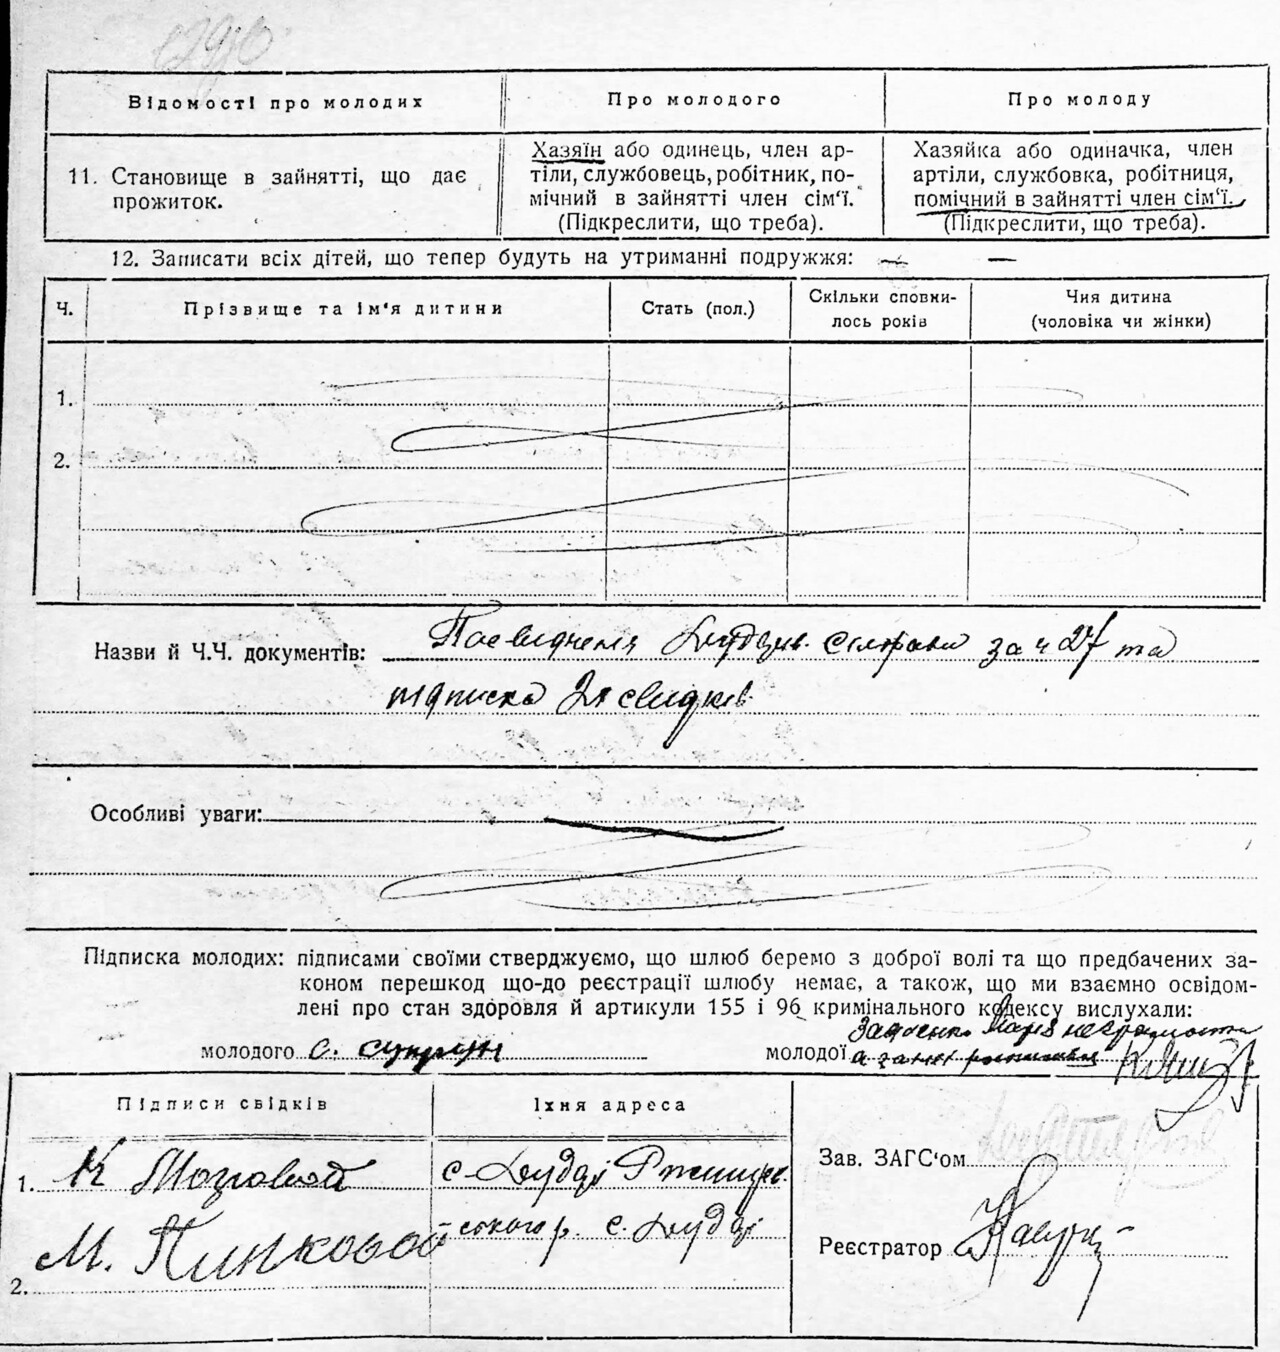 Відомості про молодих
Про молодого
Про молоду
11. Становище в зайнятті, що дає
прожиток.
Хазяїн або одинець, член ар-
тіли, службовець, робітник, по-
мічний в зайнятті член сім'ї.
(Підкреслити, що треба).
Хазяйка або одиначка, член
артіли, службовка, робітниця,
помічний в зайнятті член сім'ї.
(Підкреслити, що треба).
12. Записати всіх дітей, що тепер будуть на утриманні подружжя: —
Ч.
Прізвище та ім'я дитини
Стать (пол.)
Скільки сповни-
лось років
Чия дитина
(чоловіка чи жінки)
1.
2.
Назви й Ч.Ч. документів: сільради за ч 27 та
підписка 2х свидків
Особливі уваги:
Підписка молодих: підписами своїми стверджуємо, що шлюб беремо з доброї волі та що предбачених за-
коном перешкод що-до реєстрації шлюбу немає, а також, що ми взаємно освідом-
лені про стан здоровля й артикули 155 і 96 кримінального кодексу вислухали:
молодого С. Супрун
молодої
Підписи свідків
Їхня адреса
1. К Мозговой
с. Дударі
ського р. с. Дударі
М. Пинковой
2.
Зав. ЗАГС'ом
Реєстратор